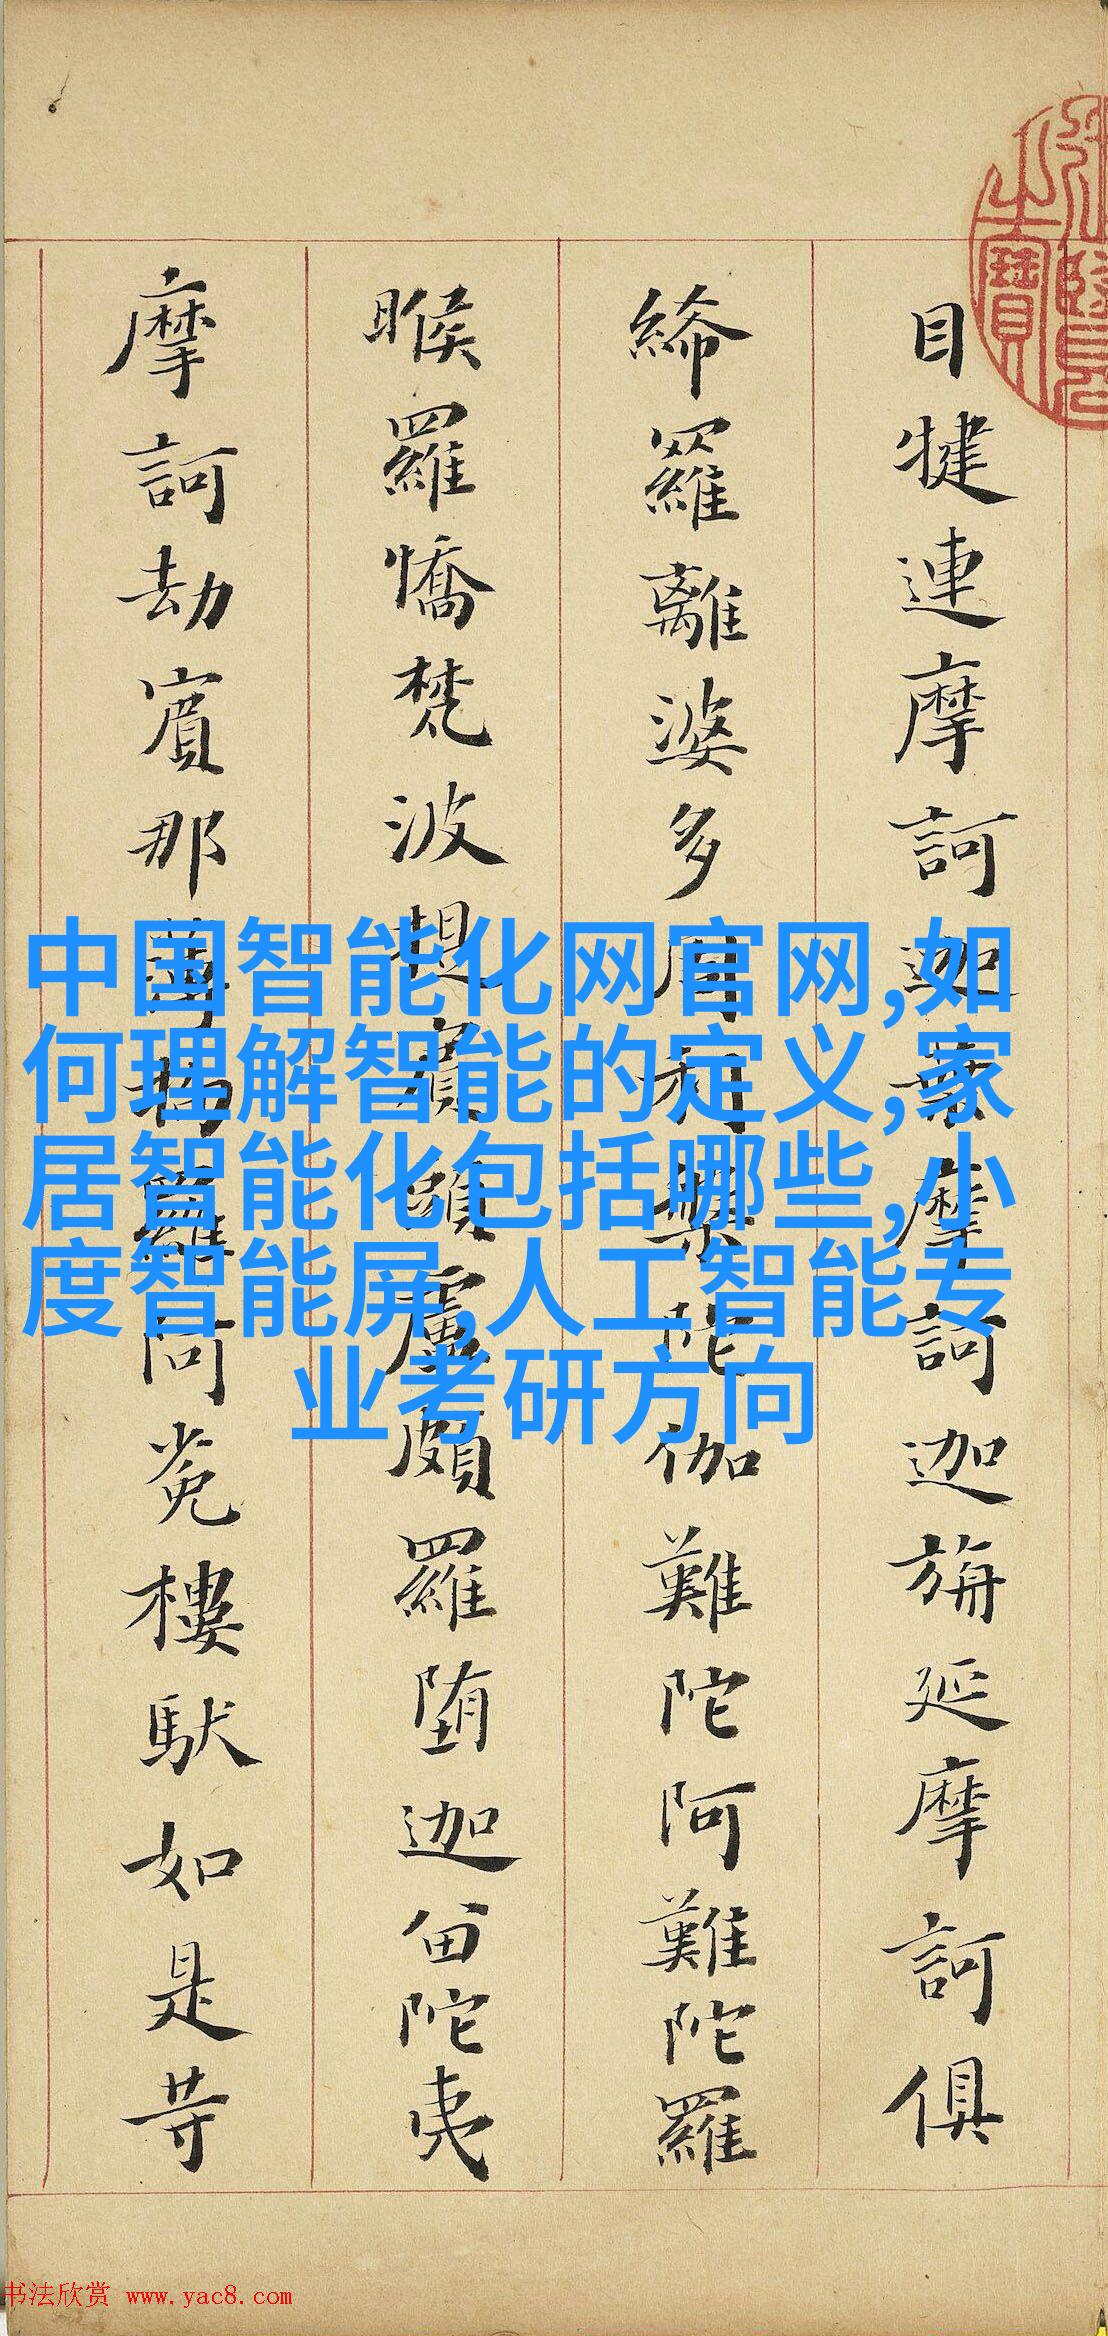 目犍連摩訶迦葉摩訶迦旃延摩訶俱
絺羅離婆多周利槃陀伽難陀阿難陀羅
睺羅憍梵波提賓頭盧頗羅堕迦留陀夷
摩訶劫賓那薄拘羅阿㝹樓馱如是等
中国智能化网官网,如
何理解智能的定义,家
居智能化包括哪些,小
度智能屏,人工智能专
业考研方向
书法欣赏 www.yac8.com